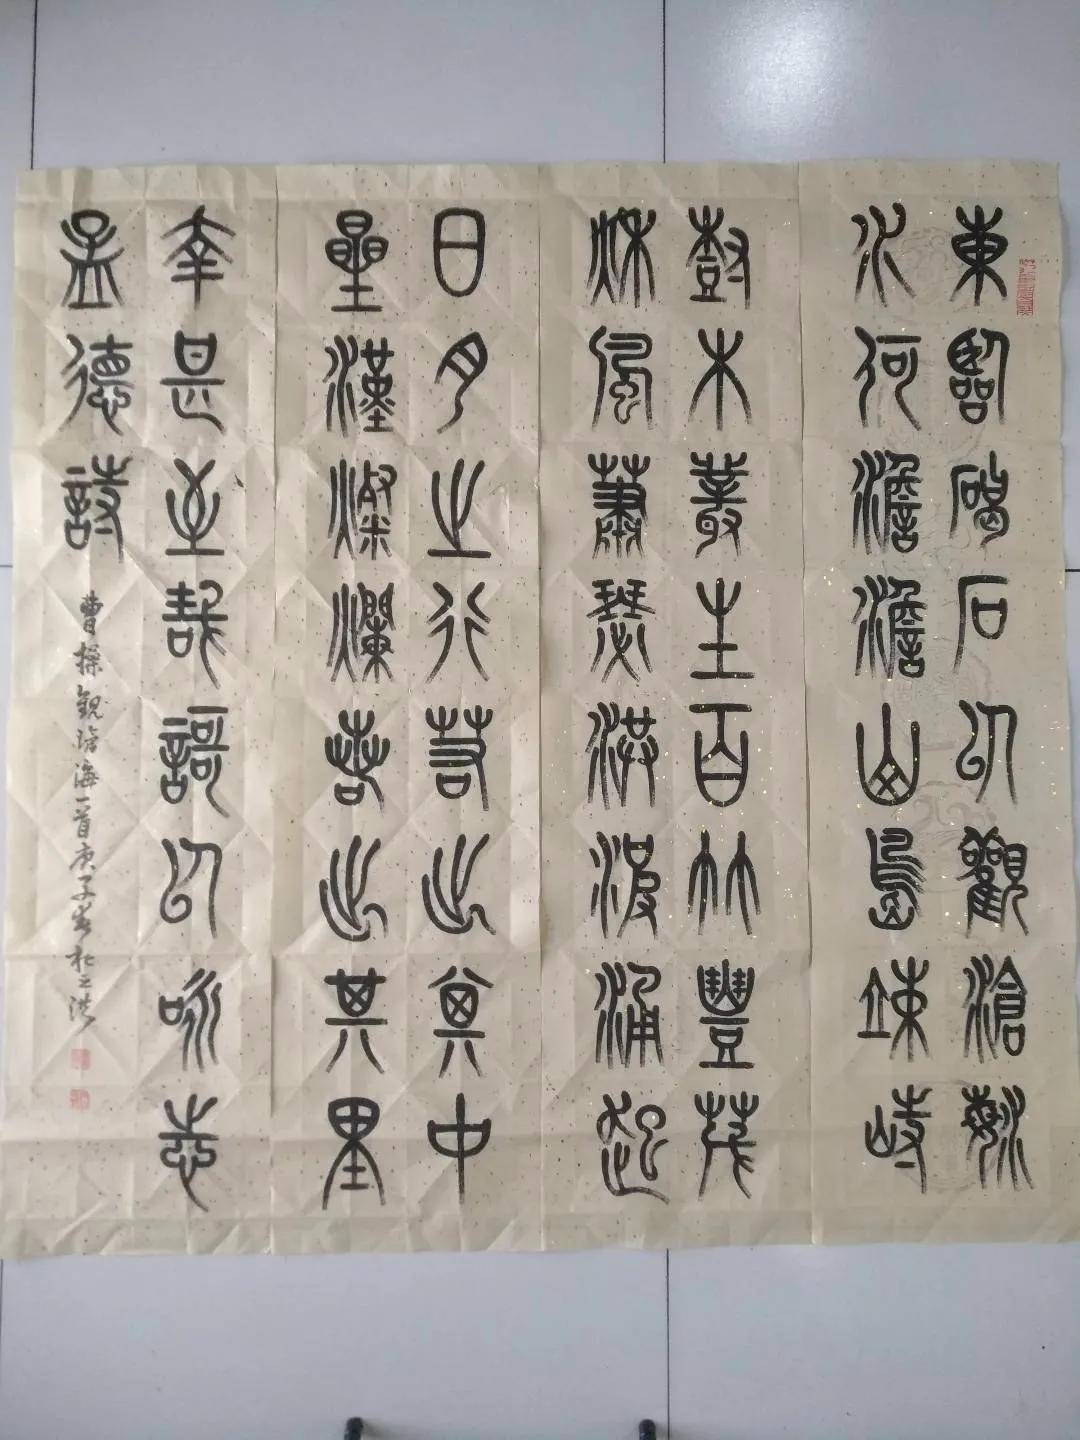 東臨碣石以觀滄海
水何澹澹山島竦峙
樹木叢生百艸豐茂
秌風蕭瑟洪波涌起
日月之行若出其中
星漢燦爛若出其里
幸甚至哉謌以咏志
孟德詩
曹操觀滄海一首庚子